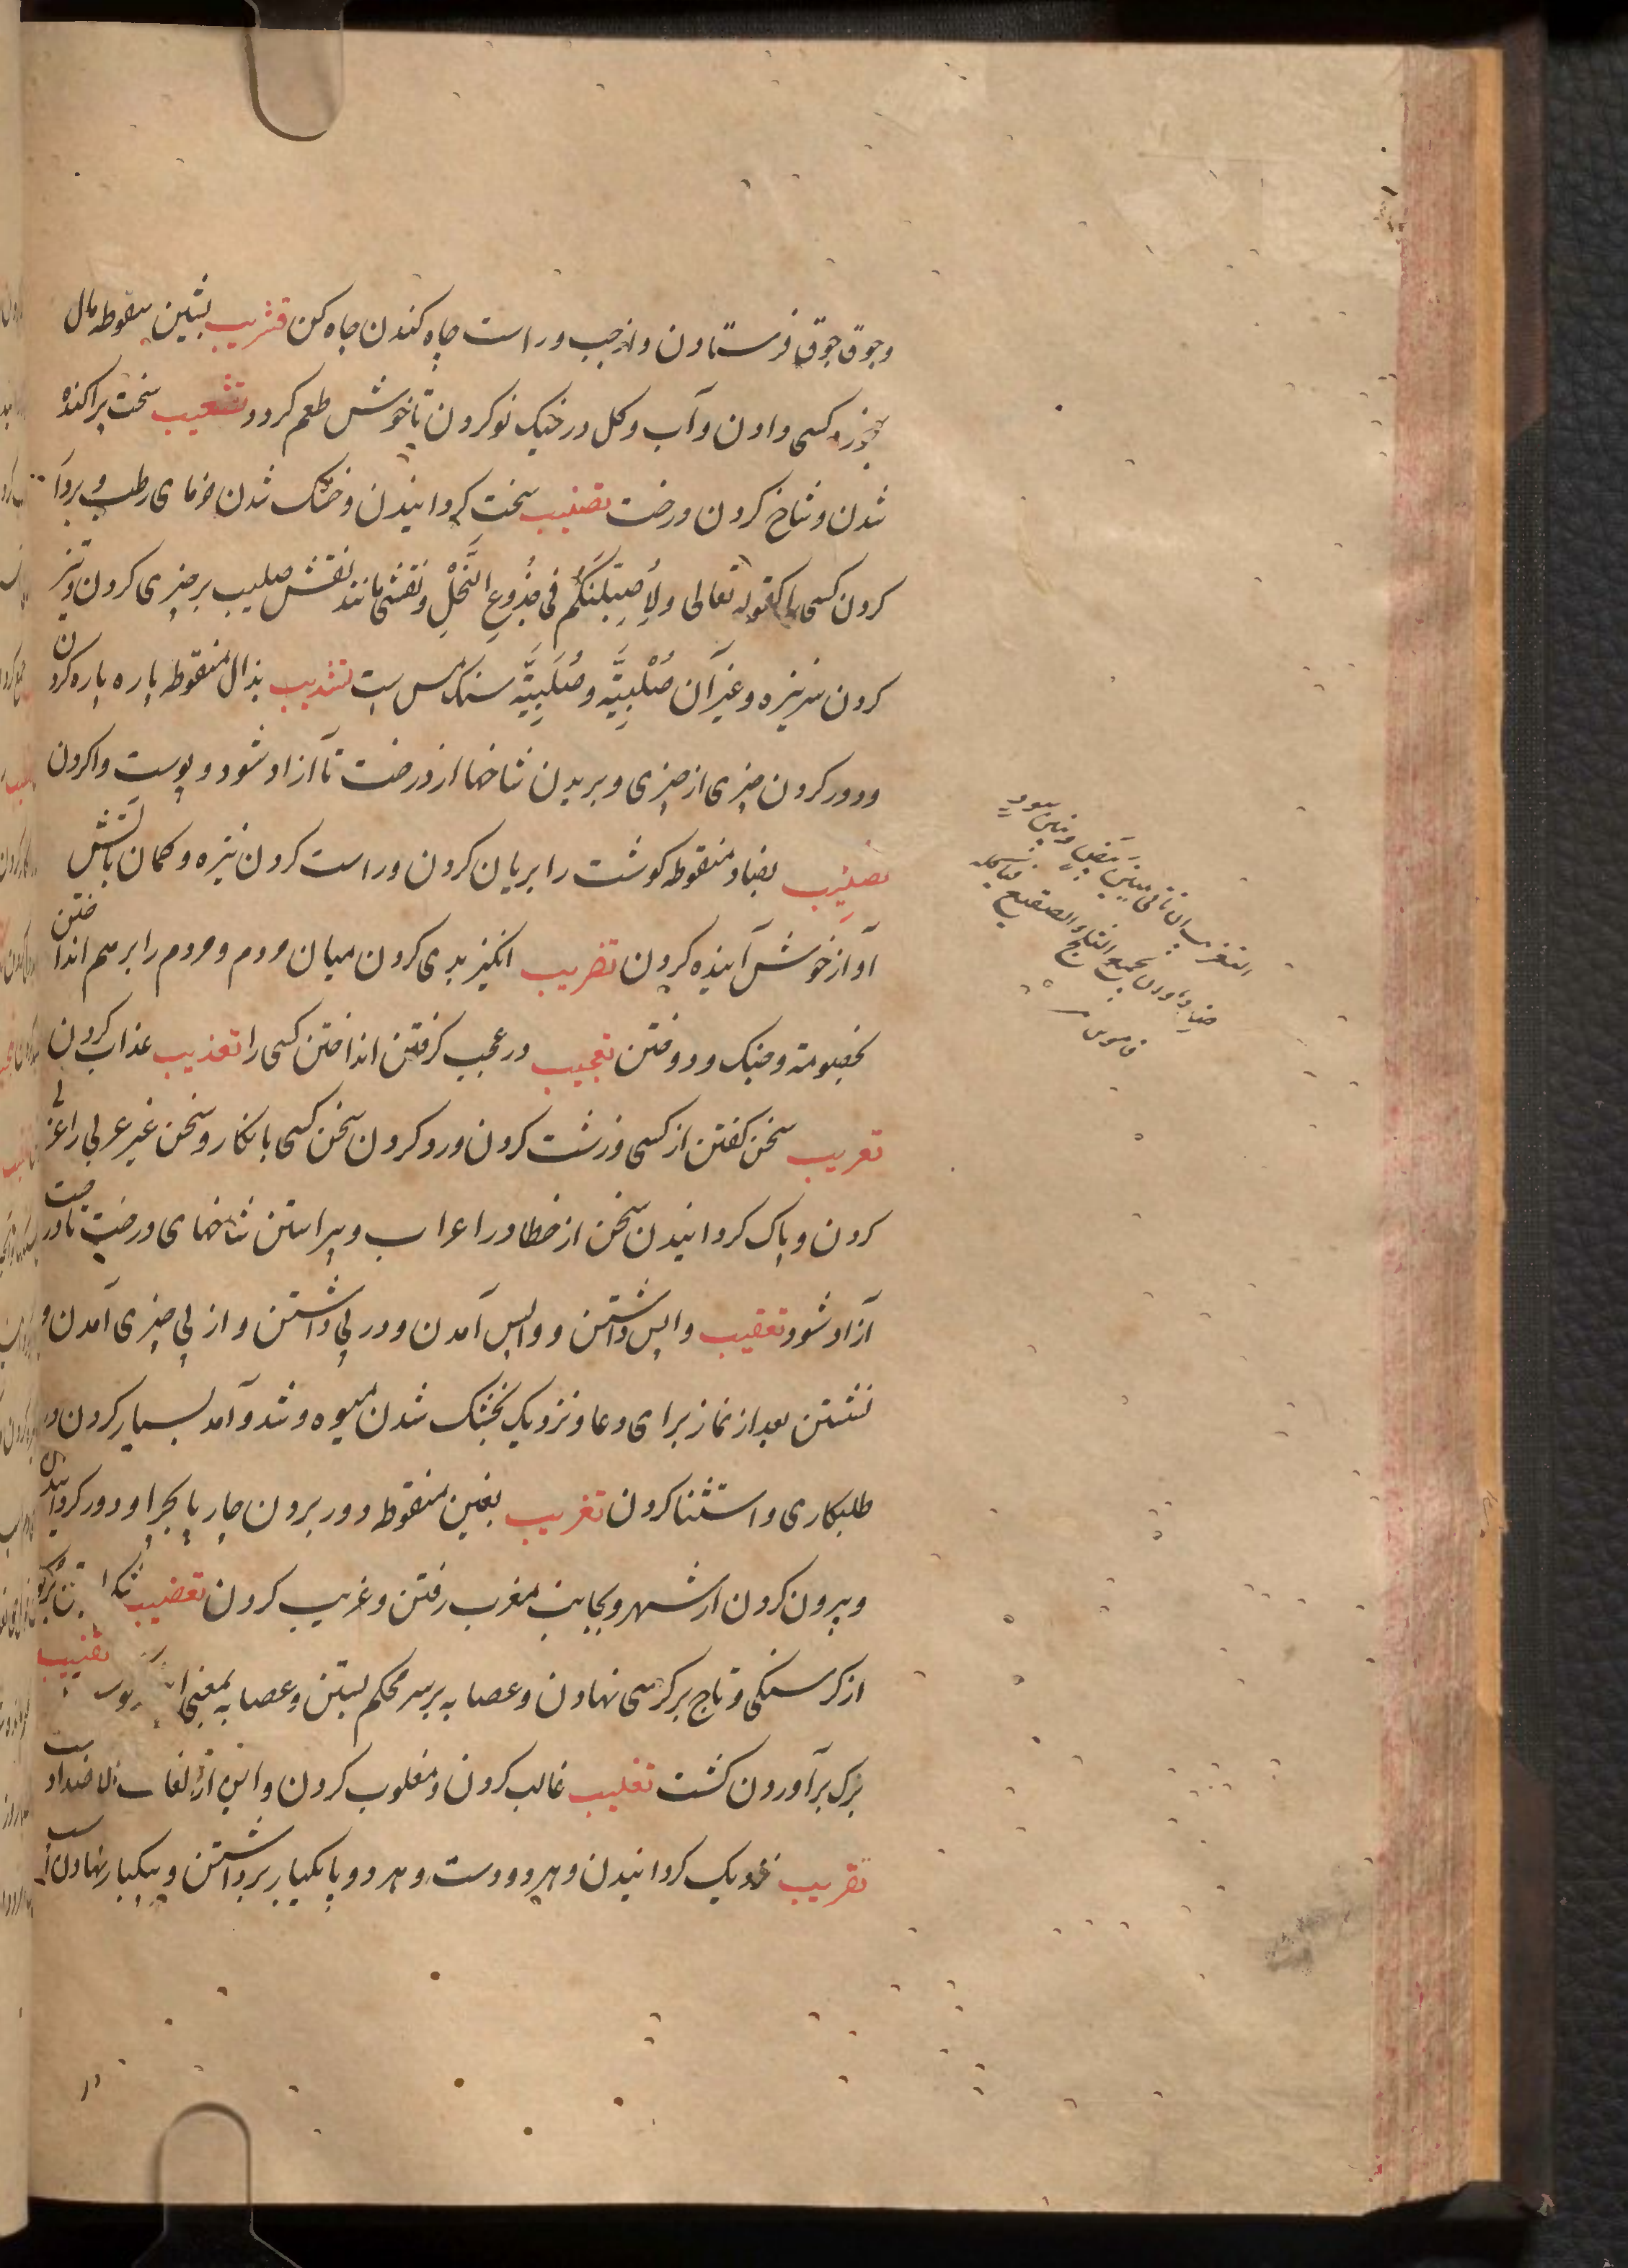 وجوق جوق فرستادن و از چپ و راست چاه کندن چاه کن تشریب بشین منقوطه مال
بخورد کسی دادن و آب و کل در خیک نو کردن تا خوش طعم کردد تشعیب سخت پراکنده
شدن و شاخ کردن درخت تصلیب سخت کردانیدن و خشک شدن خرمای رطب و بردار
کردن کسی را کقوله تعالی ولاصلبنکم فی جُذُوعِ النَّخْلِ و نقشی مانند نقش صلیب بر چیزی کردن و تیز
کردن سر نیزه و غیر آن صُلَّبِیَّه و صُلَّبِیَّه سنک مس است تشذیب بذال منقوطه پاره پاره کردن
و دور کردن چیزی از چیزی و بریدن شاخها از درخت تا آزاد شود و پوست وا کردن
تضهیب بضاد منقوطه کوشت را بریان کردن و راست کردن نیزه و کمان باتش
آواز خوش آینده کردن تضریب انکیز بدی کردن میان مردم و مردم را برهم انداختن
بخصومة و جنک و دوختن تعجیب در عجب کرفتن انداختن کسی را تعذیب عذاب کردن
تعریب سخن کفتن از کسی و زشت کردن و رد کردن سخن کسی بانکار و سخن غیر عربی را عربی
کردن و پاک کردانیدن سخن از خطا در اعراب و پیراستن شاخهای درخت تا درخت
آزاد شود تعقیب واپس داشتن و واپس آمدن و در پی داشتن و از پی چیزی آمدن و
نشستن بعد از نماز برای دعا و نزدیک بخشک شدن میوه و شد و آمد بسیار کردن در
طلبکاری و استثنا کردن تغریب بغین منقوط و دور بردن چارپا بچرا و دور کردانیدن
و بیرون کردن از شهر و بجانب مغرب رفتن و غریب کردن تعصیب
از کرسنکی و تاج بر کرسی نهادن و عصابه بر سر محکم بستن و عصابه بمعنی تقنیب
برک برآوردن کشت تغلیب غالب کردن و مغلوب کردن و این از لغات الاضداد است
تقریب نزدیک کردانیدن و هر دو دست و هر دو پا یکبار برداشتن و بیکبار نهادن اسب
التغریب ان تاتی ببنین بیض و بنین سود
ضد و ان تجمع الثلج و الصقیع فتاکله
قاموس